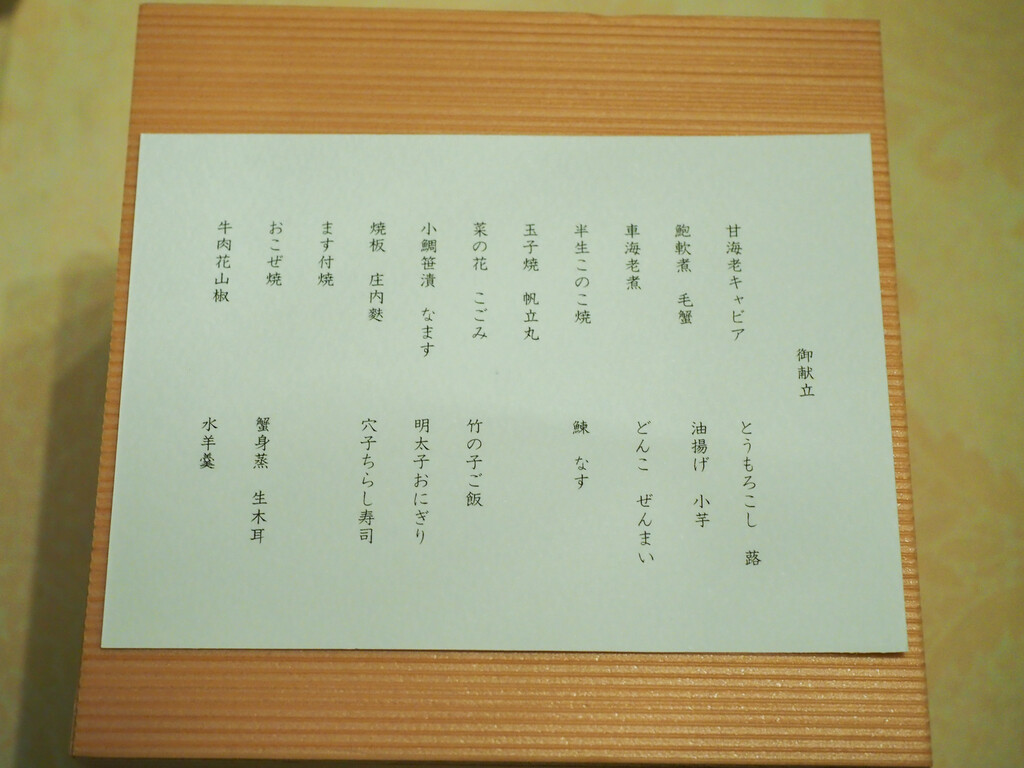 御献立
甘海老キャビア
鮑軟煮 毛蟹
車海老煮
半生このこ焼
玉子焼 帆立丸
菜の花 こごみ
小鯛笹漬 なます
焼板 庄内麩
ます付焼
おこぜ焼
牛肉花山椒
とうもろこし 蕗
油揚げ 小芋
どんこ ぜんまい
鰊 なす
竹の子ご飯
明太子おにぎり
穴子ちらし寿司
蟹身蒸 生木耳
水羊羹